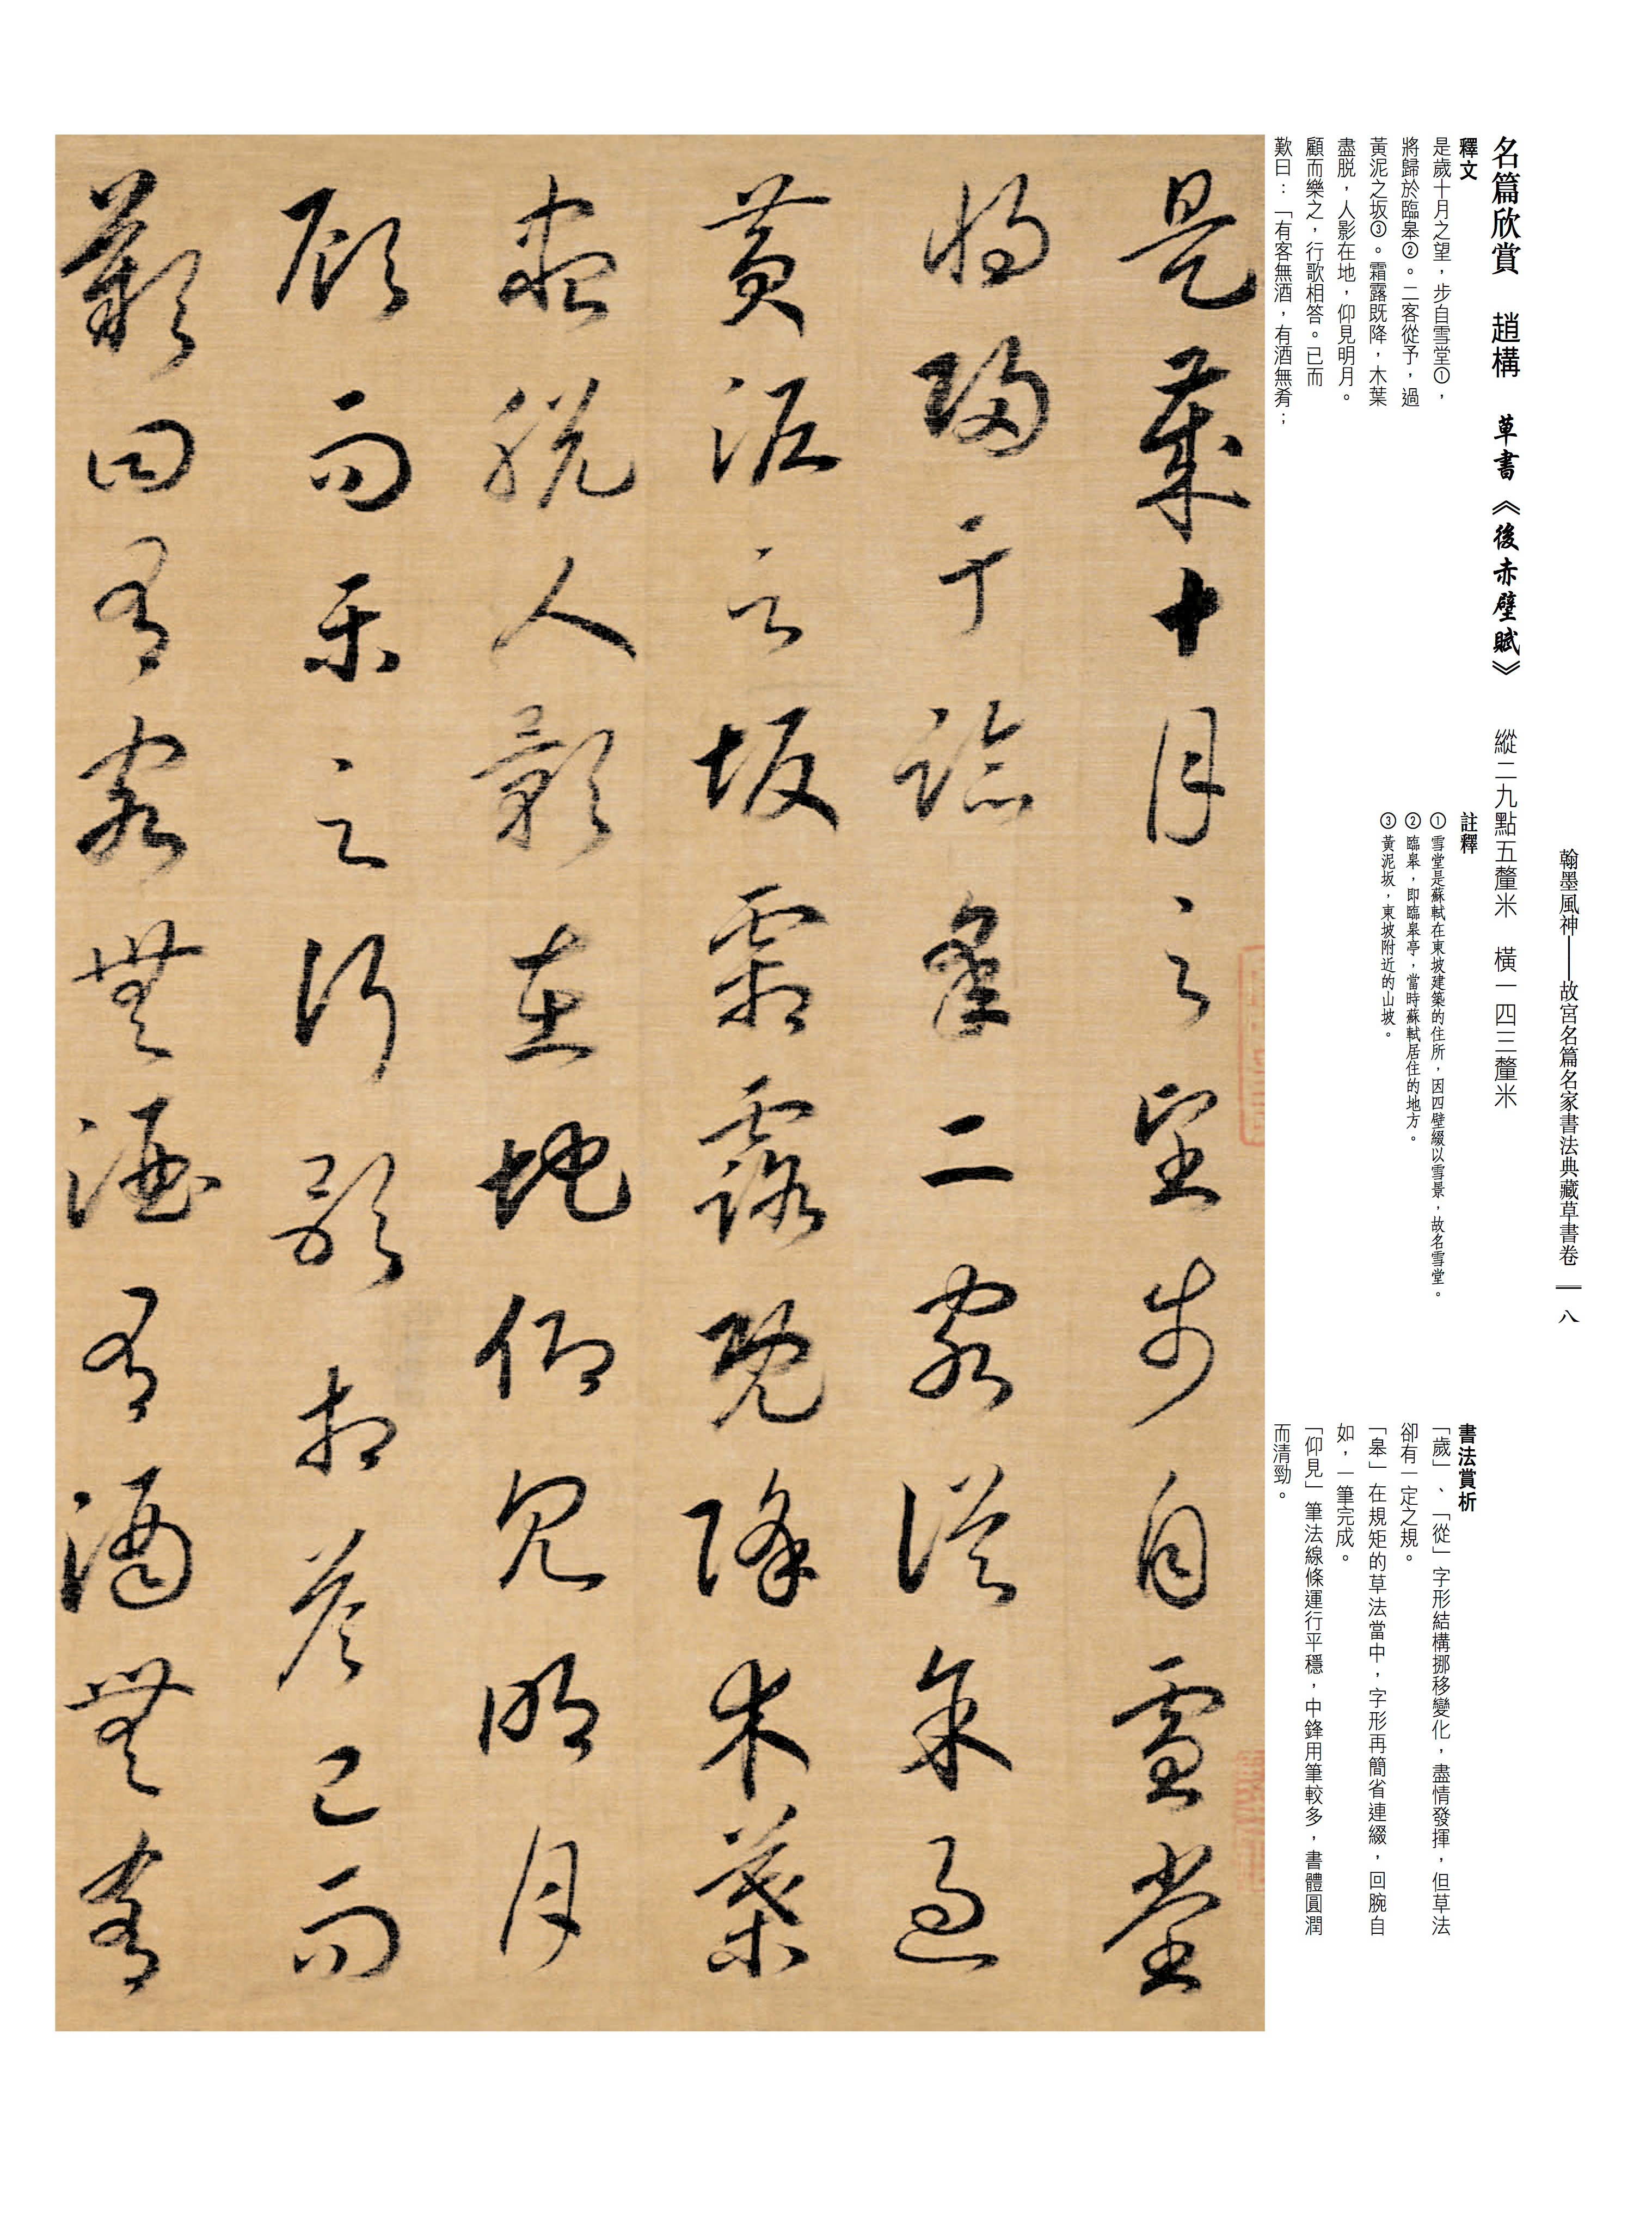 翰墨風神——故宮名篇名家書法典藏草書卷　八
名篇欣賞　趙構　草書《後赤壁賦》　縱二九點五釐米　橫一四三釐米
釋文
是歲十月之望，步自雪堂①，
將歸於臨皋②。二客從予，過
黃泥之坂③。霜露既降，木葉
盡脫，人影在地，仰見明月。
顧而樂之，行歌相答。已而
歎曰：「有客無酒，有酒無肴；
註釋
① 雪堂是蘇軾在東坡建築的住所，因四壁綴以雪景，故名雪堂。
② 臨皋，即臨皋亭，當時蘇軾居住的地方。
③ 黃泥坂，東坡附近的山坡。
書法賞析
「歲」、「從」字形結構挪移變化，盡情發揮，但草法
卻有一定之規。
「皋」在規矩的草法當中，字形再簡省連綴，回腕自
如，一筆完成。
「仰見」筆法線條運行平穩，中鋒用筆較多，書體圓潤
而清勁。
是歲十月之望步自雪堂
將歸于臨皋二客從予過
黃泥之坂霜露既降木葉
盡脫人影在地仰見明月
顧而樂之行歌相答已而
歎曰有客無酒有酒無肴